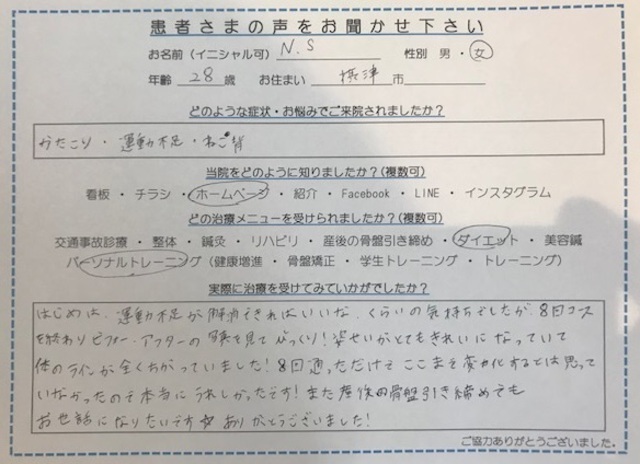 患者さまの声をお聞かせ下さい
お名前(イニシャル可) N.S 性別 男・女
年齢 28 歳 お住まい 摂津 市
どのような症状・お悩みでご来院されましたか?
かたこり・運動不足・ねこ背
当院をどのように知りましたか?(複数可)
看板・チラシ・ホームページ・紹介・Facebook・LINE・インスタグラム
どの治療メニューを受けられましたか?(複数可)
交通事故診療・整体・鍼灸・リハビリ・産後の骨盤引き締め・ダイエット・美容鍼
パーソナルトレーニング(健康増進・骨盤矯正・学生トレーニング・トレーニング)
実際に治療を受けてみていかがでしたか?
はじめは、運動不足が解消できればいいな、くらいの気持ちでしたが、8回コース
を終わりビフォー、アフターの写真を見てびっくり!姿せいがとてもきれいになっていて
体のラインが全くちがっていました!8回通っただけでここまで変化するとは思って
いなかったので本当にうれしかったです!また産後の骨盤引き締めでも
お世話になりたいです☆ありがとうございました!
ご協力ありがとうございました。